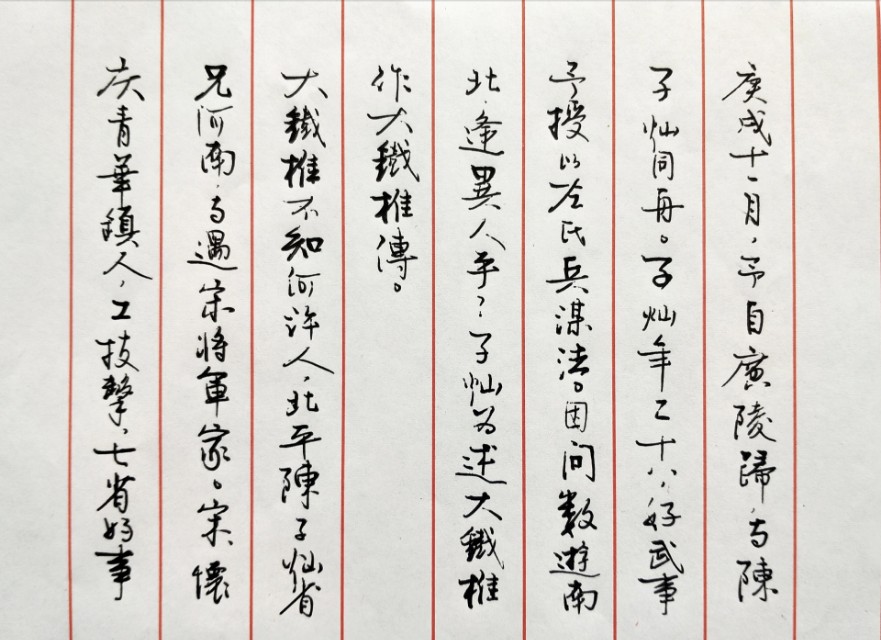 庚戌十一月，予自廣陵歸，与陳
子灿同舟。子灿年二十八，好武事
予授以左氏兵謀法。因问数遊南
北，逢異人乎？子灿为述大鐵椎
作大鐵椎傳。
大鐵椎不知何許人，北平陳子灿省
兄河南，与遇宋將軍家。宋、懷
庆青華鎮人，工技擊，七省好事